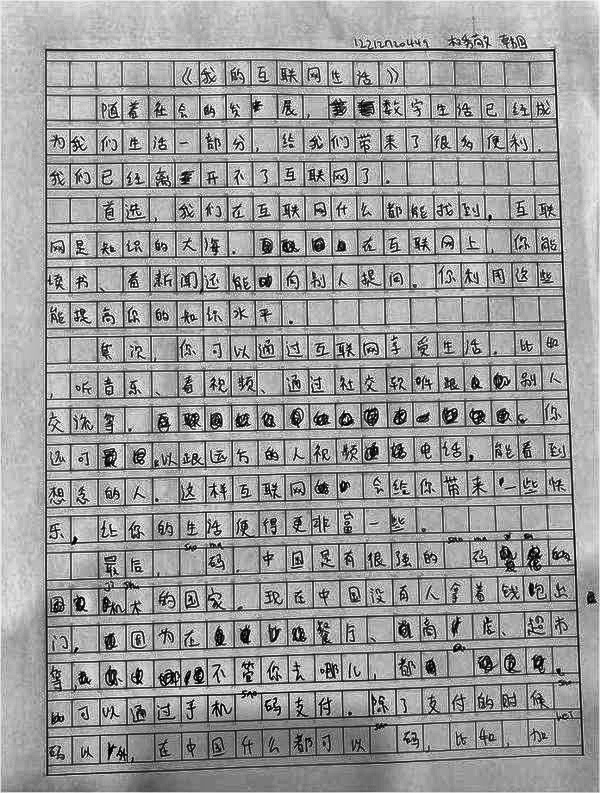 12212720449 韩国
《我的互联网生活》
随着社会的发展，数字生活已经成
为我们生活一部分，给我们带来了很多便利.
我们已经离开不了互联网了.
首选，我们在互联网什么都能找到，互联
网是知识的大海. 在互联网上，你能
读书、看新闻,还能向别人提问. 你利用这些
能提高你的知识水平.
其次，你可以通过互联网享受生活. 比如
，听音乐、看视频、通过社交软件跟别人
交流等. 你
还可以跟远方的人视频电话，能看到
想念的人. 这样互联网会给你带来一些快
乐，让你的生活更非富一些.
最后，sao ma 码，中国是有很强的 sao ma 码
的国家. 现在中国没有人拿着钱包出
门，因为在餐厅、商店、超市
等，不管你去哪儿，都
可以通过手机 sao 码支付. 除了支付的时候 sao
码以外，在中国什么都可以 sao 码，比如，加 wei